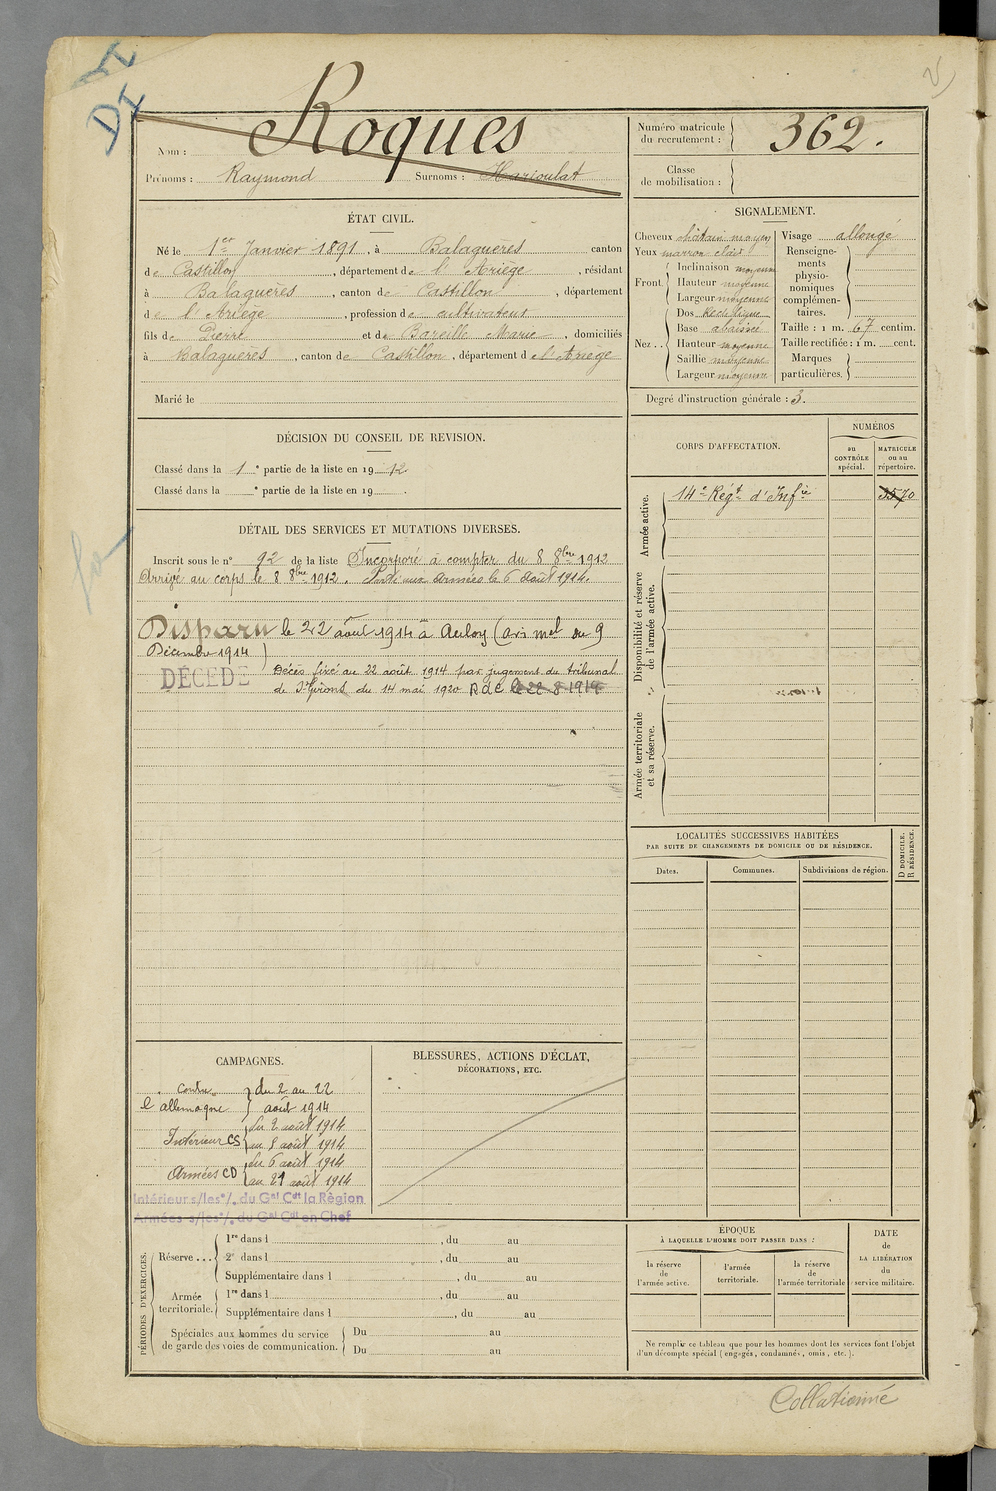 DI
DI
Nom : Roques
Prénoms : Raymond Surnoms : Harioulat
Numéro matricule du recrutement : 362.
Classe de mobilisation :
ÉTAT CIVIL.
Né le 1er Janvier 1891, à Balaguères canton
de Castillon, département de l'Ariège, résidant
à Balaguères, canton de Castillon, département
de l'Ariège, profession de cultivateur
fils de Pierre et de Bareille Marie, domiciliés
à Balaguères, canton de Castillon, département de l'Ariège
Marié le
SIGNALEMENT.
Cheveux châtain moyen
Yeux marron clair
Front Inclinaison moyenne
Hauteur moyenne
Largeur moyenne
Nez Dos Rectiligne
Base abaissée
Hauteur moyenne
Saillie moyenne
Largeur moyenne
Visage allongé
Renseignements physionomiques complémentaires.
Taille : 1 m. 67 centim.
Taille rectifiée : 1 m. cent.
Marques particulières.
Degré d'instruction générale : 3.
DÉCISION DU CONSEIL DE REVISION.
Classé dans la 1e partie de la liste en 1912.
Classé dans la e partie de la liste en 19 .
CORPS D'AFFECTATION.
NUMÉROS
au CONTRÔLE spécial.
MATRICULE ou au répertoire.
Armée active.
14e Régt d'Infie 3570
Disponibilité et réserve de l'armée active.
Armée territoriale et sa réserve.
DÉTAIL DES SERVICES ET MUTATIONS DIVERSES.
Inscrit sous le n° 92 de la liste Incorporé à compter du 8 8bre 1912
Arrivé au corps le 8 8bre 1912. Parti aux armées le 6 Août 1914.
Disparu le 22 août 1914 à (avis mel du 9
Décembre 1914)
DÉCÉDÉ
Décès fixé au 22 août 1914 par jugement du tribunal
de St Girons du 14 mai 1920 le 22 8 1914
LOCALITÉS SUCCESSIVES HABITÉES
PAR SUITE DE CHANGEMENTS DE DOMICILE OU DE RÉSIDENCE.
Dates. Communes. Subdivisions de région. D DOMICILE. R RÉSIDENCE.
CAMPAGNES.
contre l'allemagne du 2 au 22 août 1914
Intérieur CS du 2 août 1914
au 5 août 1914
Armées CD du 6 août 1914
au 21 août 1914
Intérieur s/les °/. du Gal Cdt la Région
Armées s/les °/. du Gal Cdt en Chef
BLESSURES, ACTIONS D'ÉCLAT,
DÉCORATIONS, ETC.
PÉRIODES D'EXERCICES.
Réserve ... 1re dans l , du au
2e dans l , du au
Supplémentaire dans l , du au
Armée territoriale. 1re dans l , du au
Supplémentaire dans l , du au
Spéciales aux hommes du service de garde des voies de communication. Du au
Du au
ÉPOQUE
À LAQUELLE L'HOMME DOIT PASSER DANS :
la réserve de l'armée active.
l'armée territoriale.
la réserve de l'armée territoriale
DATE de LA LIBÉRATION du service militaire.
Ne remplir ce tableau que pour les hommes dont les services font l'objet
d'un décompte spécial (engagés, condamnés, omis, etc.).
Collationné